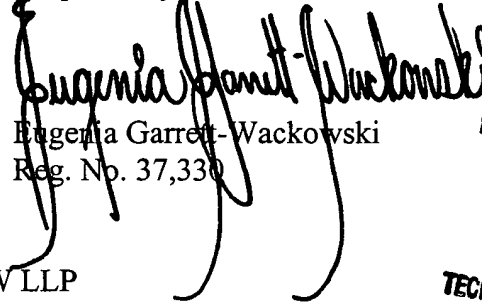 Eugenia Garrett-Wackowski
Eugenia Garrett-Wackowski
Reg. No. 37,330
LLP
TECH